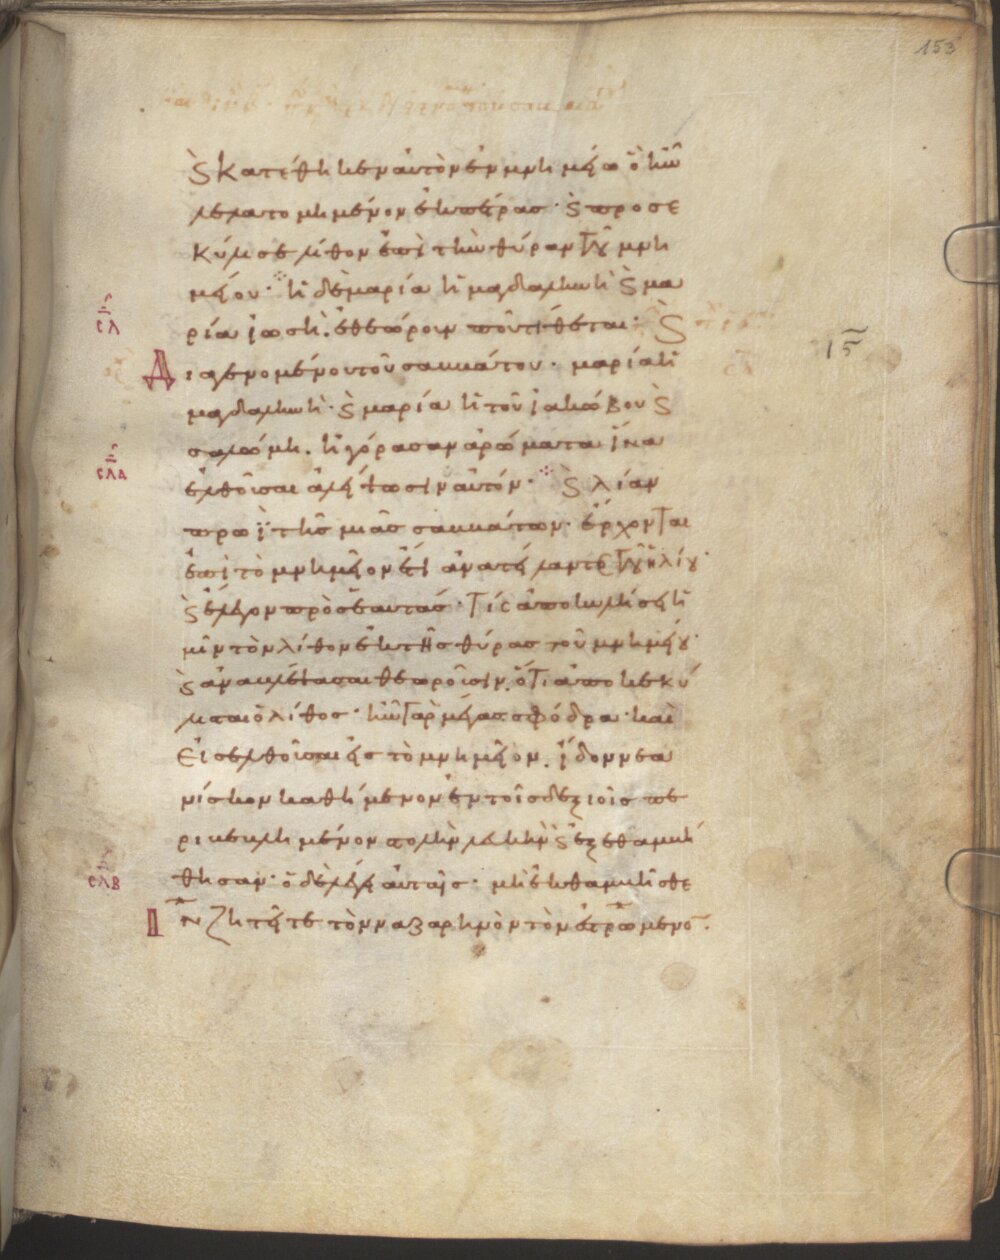 153
ϗ κατέθηκεν αὐτὸν ἐν μνημείω ὃ ἦν
λελατομημένον ἐκ πέτρας· ϗ προσε
κύλισε λίθον ἐπὶ τὴν θύραν τοῦ μνη
μείου· ἡ δὲ μαρία ἡ μαγδαληνὴ ϗ μα
ρία ἰωσῆ. ἐθεώρουν ποῦ τίθεται· ϗ
σλ
Διαγενομένου τοῦ σαββάτου· μαρία ἡ
15
μαγδαληνὴ· ϗ μαρία ἡ τοῦ ἰακώβου ϗ
σαλώμη. ἠγόρασαν ἀρώματα ἵνα
σλα
ἐλθοῦσαι ἀλείψωσιν αὐτόν· ϗ λίαν
πρωῒ τῆς μιᾶς σαββάτων· ἔρχονται
ἐπὶ τὸ μνημεῖον ἔτι ἀνατείλαντος τοῦ ἡλίου·
ϗ ἔλεγον πρὸς ἑαυτάς· Τίς ἀποκυλίσει ἡ
μῖν τὸν λίθον ἐκ τῆς θύρας τοῦ μνημείου·
ϗ ἀναβλέψασαι θεωροῦσιν. ὅτι ἀποκεκύ
λισται ὁ λίθος· ἦν γὰρ μέγας σφόδρα· καὶ
εἰσελθοῦσαι εἰς τὸ μνημεῖον. ἴδον νεα
νίσκον καθήμενον ἐν τοῖς δεξιοῖς πε
ριβεβλημένον στολὴν λευκὴν ϗ ἐξεθαμβή
θησαν· ὁ δὲ λέγει αὐταῖς· μὴ ἐκθαμβεῖσθε
σλβ
ΙΝ ζητεῖτε τὸν ναζαρηνὸν τὸν ἐσταυρωμένον.